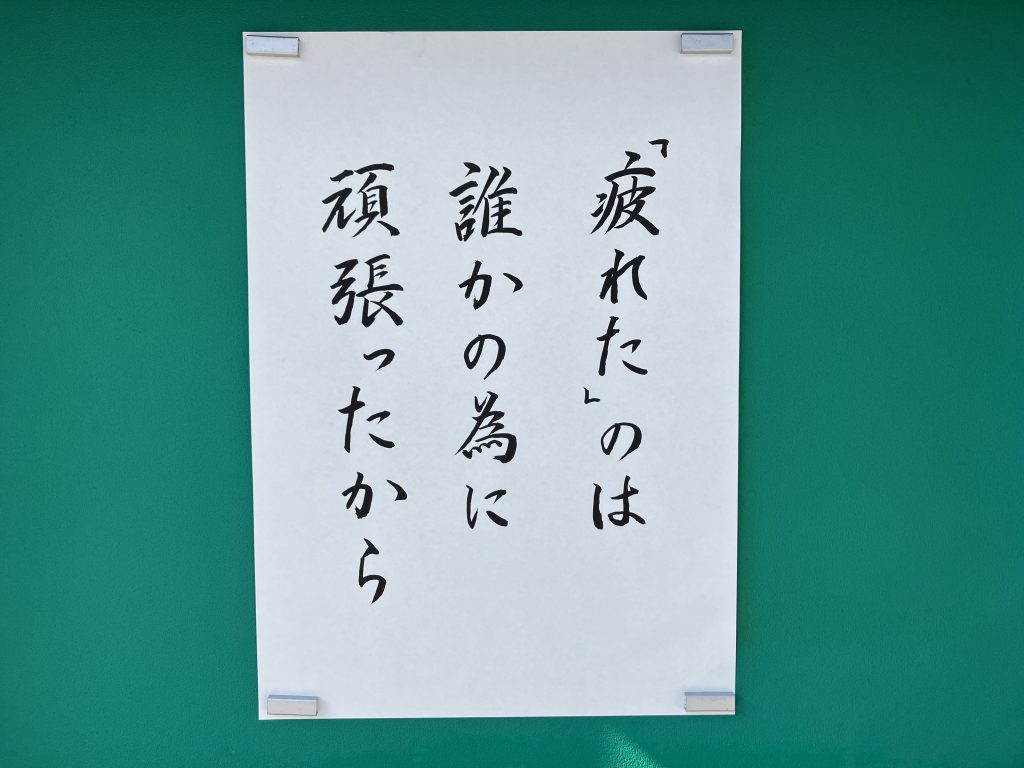 「疲れた」のは
誰かの為に
頑張ったから